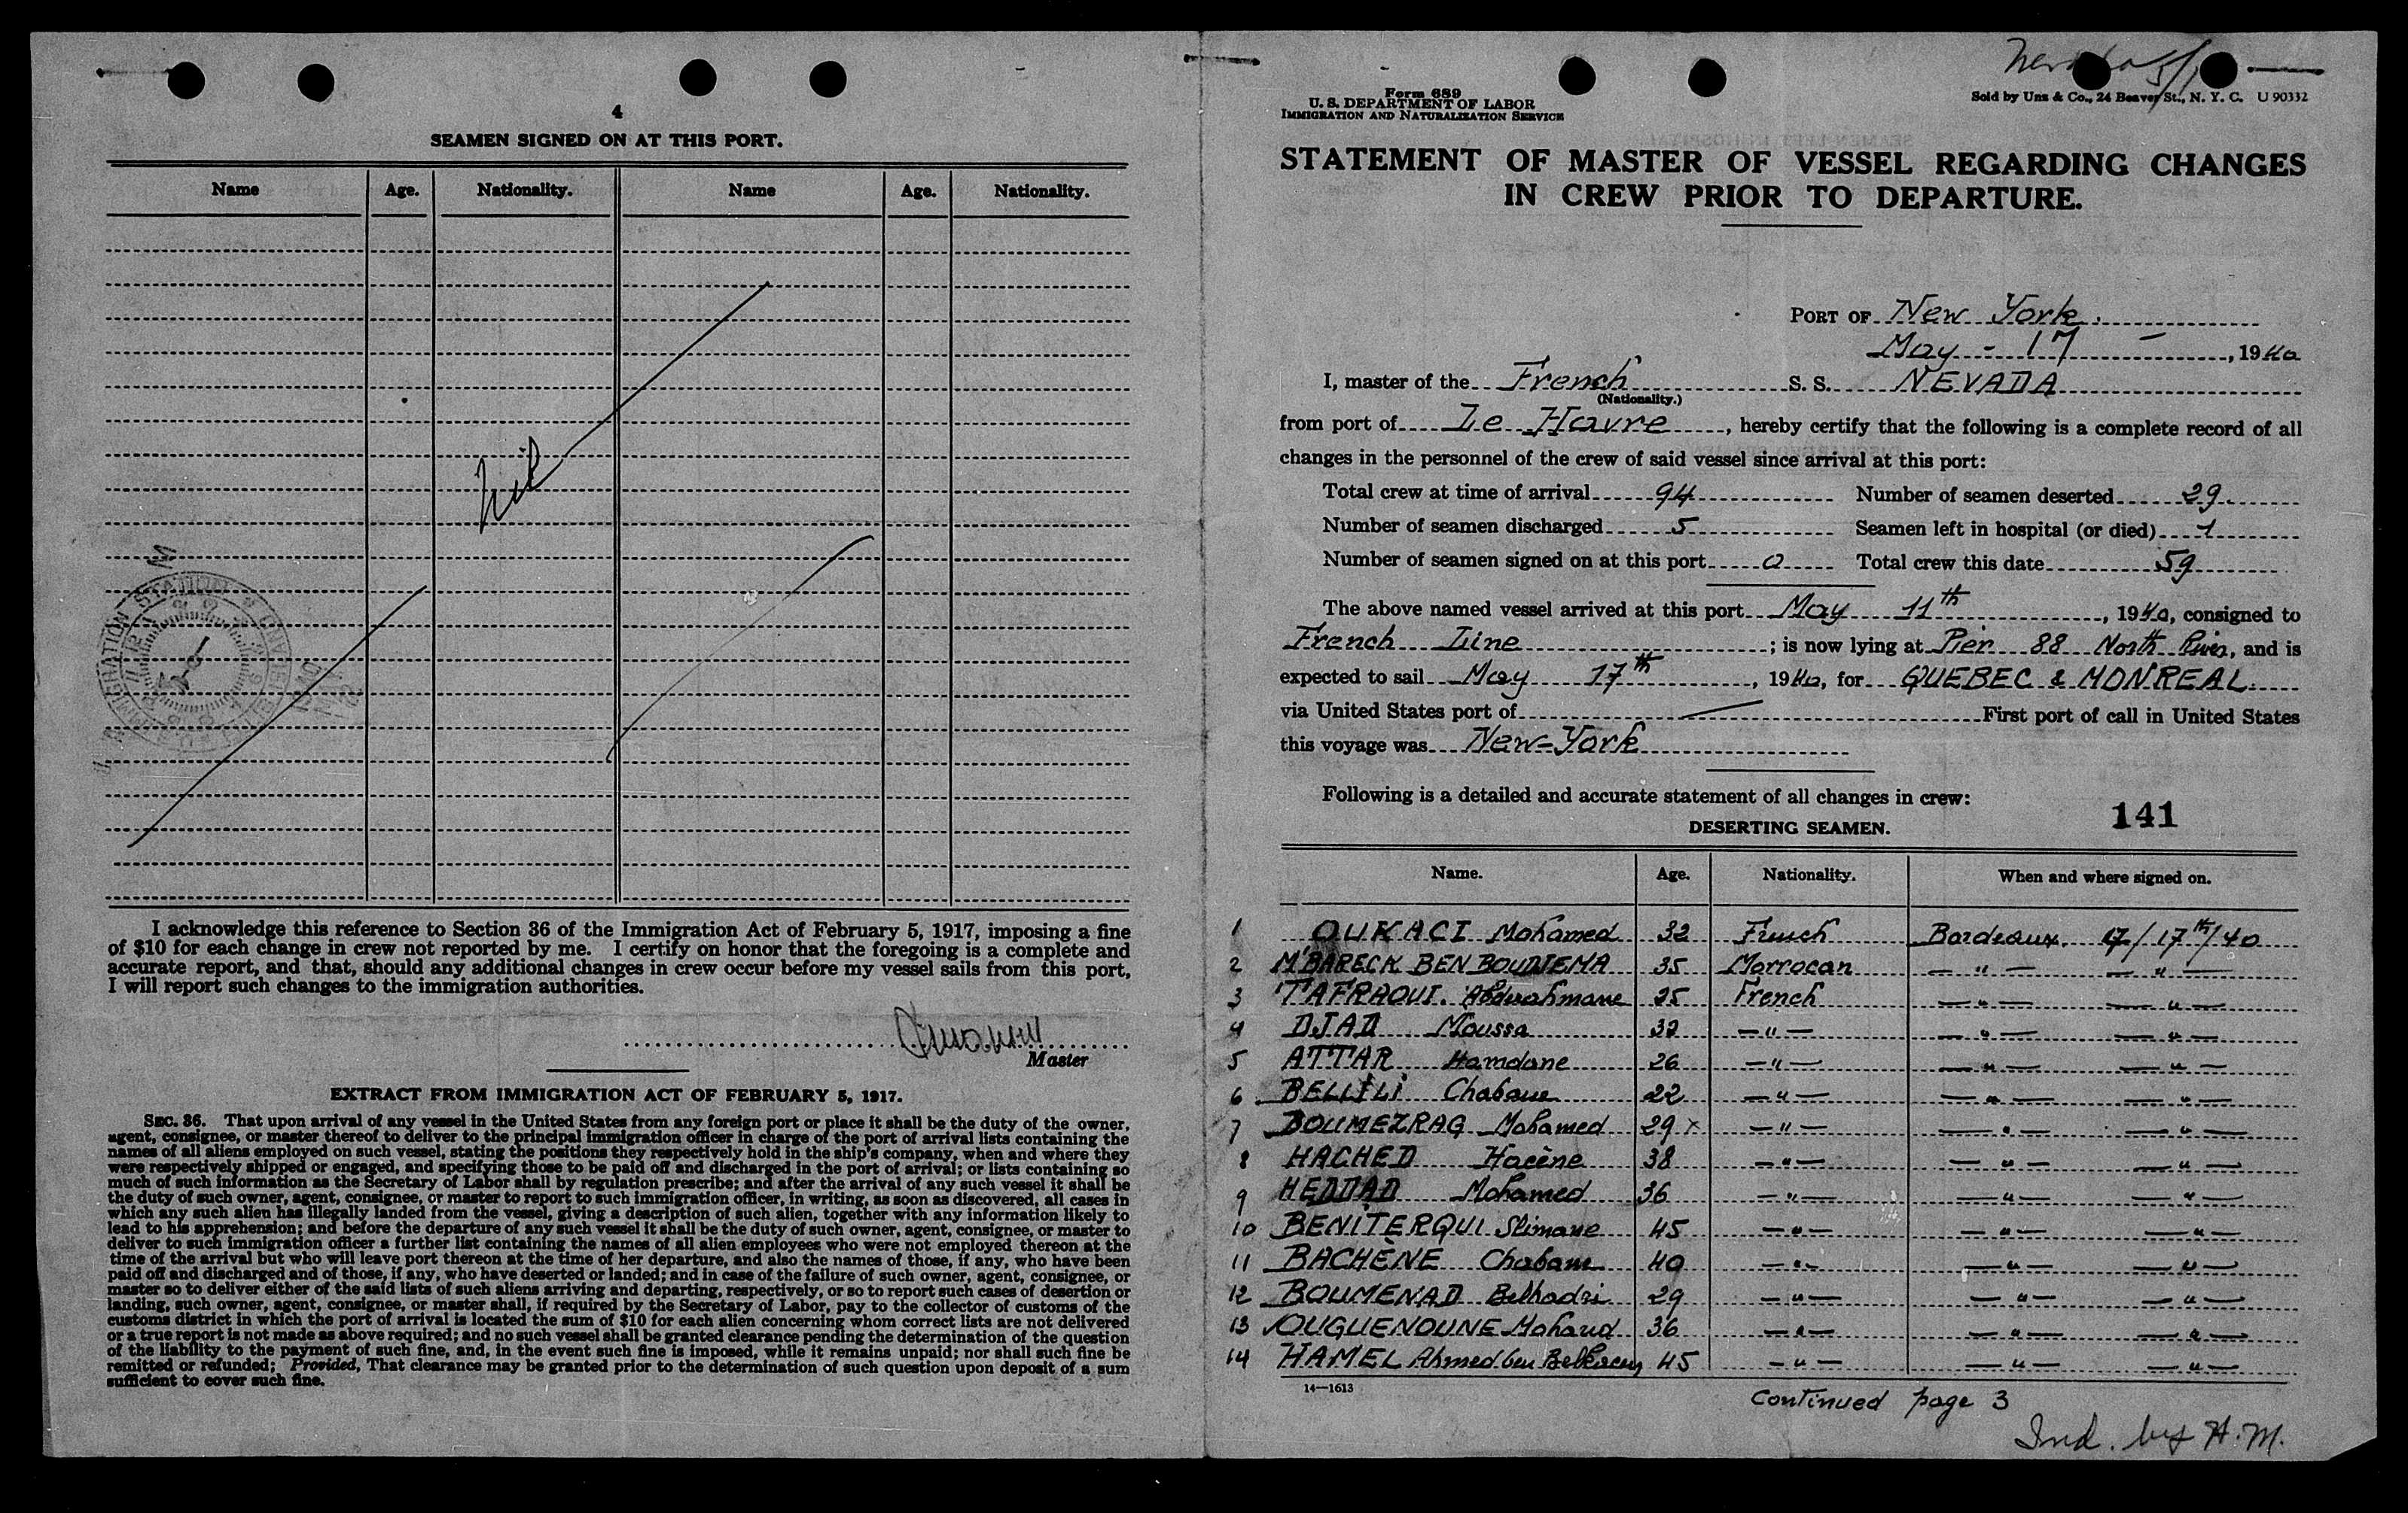 4
SEAMEN SIGNED ON AT THIS PORT.
Name Age. Nationality. Name Age. Nationality.
nil
IMMIGRATION STATION ELLIS ISLAND
I acknowledge this reference to Section 36 of the Immigration Act of February 5, 1917, imposing a fine
of $10 for each change in crew not reported by me. I certify on honor that the foregoing is a complete and
accurate report, and that, should any additional changes in crew occur before my vessel sails from this port,
I will report such changes to the immigration authorities.
Master
EXTRACT FROM IMMIGRATION ACT OF FEBRUARY 5, 1917.
SEC. 36. That upon arrival of any vessel in the United States from any foreign port or place it shall be the duty of the owner,
agent, consignee, or master thereof to deliver to the principal immigration officer in charge of the port of arrival lists containing the
names of all aliens employed on such vessel, stating the positions they respectively hold in the ship's company, when and where they
were respectively shipped or engaged, and specifying those to be paid off and discharged in the port of arrival; or lists containing so
much of such information as the Secretary of Labor shall by regulation prescribe; and after the arrival of any such vessel it shall be
the duty of such owner, agent, consignee, or master to report to such immigration officer, in writing, as soon as discovered, all cases in
which any such alien has illegally landed from the vessel, giving a description of such alien, together with any information likely to
lead to his apprehension; and before the departure of any such vessel it shall be the duty of such owner, agent, consignee, or master to
deliver to such immigration officer a further list containing the names of all alien employees who were not employed thereon at the
time of the arrival but who will leave port thereon at the time of her departure, and also the names of those, if any, who have been
paid off and discharged and of those, if any, who have deserted or landed; and in case of the failure of such owner, agent, consignee, or
master so to deliver either of the said lists of such aliens arriving and departing, respectively, or so to report such cases of desertion or
landing, such owner, agent, consignee, or master shall, if required by the Secretary of Labor, pay to the collector of customs of the
customs district in which the port of arrival is located the sum of $10 for each alien concerning whom correct lists are not delivered
or a true report is not made as above required; and no such vessel shall be granted clearance pending the determination of the question
of the liability to the payment of such fine, and, in the event such fine is imposed, while it remains unpaid; nor shall such fine be
remitted or refunded; Provided, That clearance may be granted prior to the determination of such question upon deposit of a sum
sufficient to cover such fine.
Form 689
U. S. DEPARTMENT OF LABOR
IMMIGRATION AND NATURALIZATION SERVICE
Sold by Unz & Co., 24 Beaver St., N. Y. C. U 90332
STATEMENT OF MASTER OF VESSEL REGARDING CHANGES
IN CREW PRIOR TO DEPARTURE.
PORT OF New York.
May - 17 - , 1940
I, master of the French S. S. NEVADA
(Nationality.)
from port of Le Havre, hereby certify that the following is a complete record of all
changes in the personnel of the crew of said vessel since arrival at this port:
Total crew at time of arrival 94 Number of seamen deserted 29.
Number of seamen discharged 5 Seamen left in hospital (or died) 1
Number of seamen signed on at this port 0 Total crew this date 59
The above named vessel arrived at this port May 11th, 1940, consigned to
French Line; is now lying at Pier 88 North River, and is
expected to sail May 17th, 1940, for QUEBEC & MONREAL.
via United States port of First port of call in United States
this voyage was New-York
Following is a detailed and accurate statement of all changes in crew:
141
DESERTING SEAMEN.
Name. Age. Nationality. When and where signed on.
1 OUKACI Mohamed 32 French Bordeaux. 4/17th/40
2 M'BARECK BEN BOUDJEMA 35 Morrocan - " - - " -
3 TAFRAOUI. Abderahmane 25 French - " - - " -
4 DJAD Moussa 32 - " - - " - - " -
5 ATTAR Hamdane 26 - " - - " - - " -
6 BELLILI Chabane 22 - " - - " - - " -
7 BOUMEZRAG Mohamed 29 x - " - - " - - " -
8 HACHED Hacène 38 - " - - " - - " -
9 HEDDAD Mohamed 36 - " - - " - - " -
10 BENITERQUI Slimane 45 - " - - " - - " -
11 BACHÈNE Chabane 40 - " - - " - - " -
12 BOUMENAD Belhadri 29 - " - - " - - " -
13 OUGUENOUNE Mohand 36 - " - - " - - " -
14 HAMEL Ahmed ben Belkacem 45 - " - - " - - " -
14—1613
Continued page 3
Ind. by H. M.